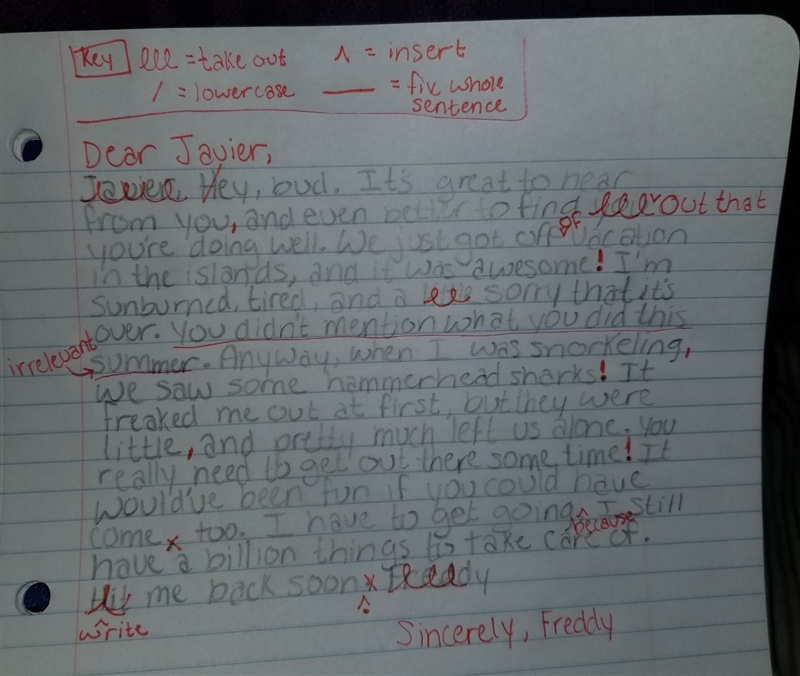 Key lll = take out ^ = insert
/ = lowercase __ = fix whole
sentence
Dear Javier,
Javier, Hey, bud. It's great to hear
from you, and even better to find out that
you're doing well. We just got off of vacation
in the islands, and it was awesome! I'm
sunburned, tired, and a sorry that it's
over. You didn't mention what you did this
irrelevant summer. Anyway, when I was snorkeling,
we saw some hammerhead sharks! It
freaked me out at first, but they were
little, and pretty much left us alone. You
really need to get out there some time! It
would've been fun if you could have
come x too. I have to get going ^ I still
because
have a billion things to take care of.
Hit me back soon x Freddy
write ^.
Sincerely, Freddy